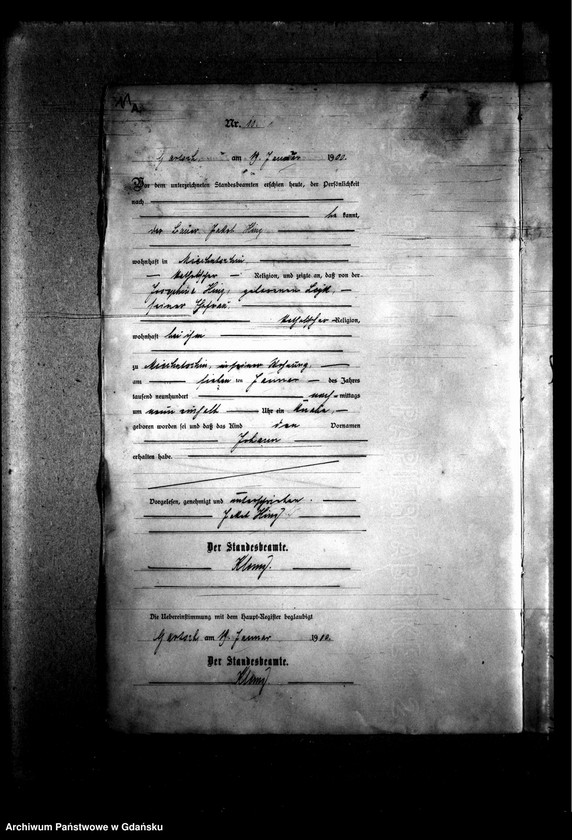 Nr. 11.
am 19. Januar 1900.
Vor dem unterzeichneten Standesbeamten erschien heute, der Persönlichkeit
nach
be kannt,
der Bauer Jakob Hinz
wohnhaft in
katholischer Religion, und zeigte an, daß von der
Hinz, geborenen
seiner Ehefrau
katholischer Religion,
wohnhaft bei ihm
zu in seiner Wohnung,
am ten Januar des Jahres
tausend neunhundert nach mittags
um neun einhalb Uhr ein Knabe
geboren worden sei und daß das Kind den Vornamen
Johann
erhalten habe.
Vorgelesen, genehmigt und unterschrieben.
Jakob Hinz
Der Standesbeamte.
Die Uebereinstimmung mit dem Haupt-Register beglaubigt
am 19. Januar 1900.
Der Standesbeamte.
Archiwum Państwowe w Gdańsku